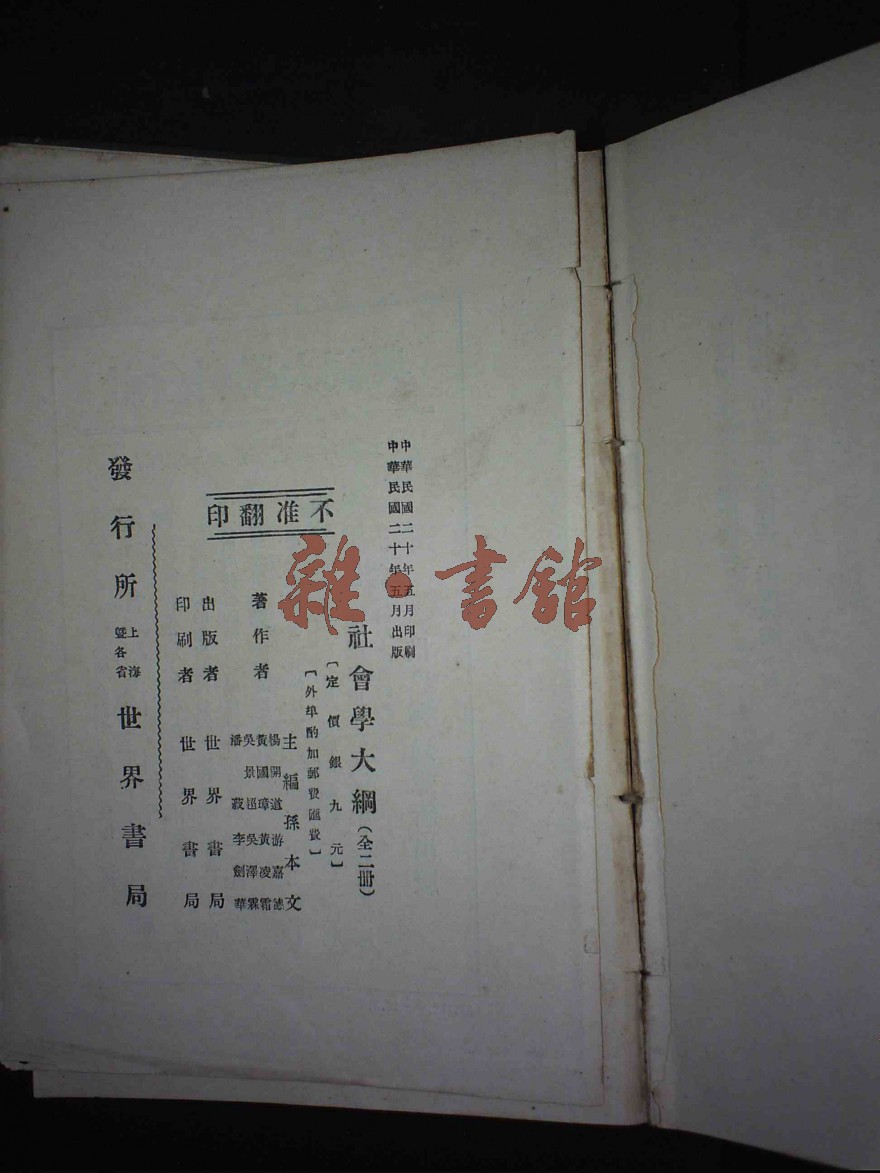 中華民國二十年五月印刷
中華民國二十年五月出版
社會學大綱(全二冊)
〔定價銀九元〕
〔外埠酌加郵費匯費〕
不准翻印
著作者
主編孫本文
楊開道 游嘉德
黃國璋 黃凌霜
吳景超 吳澤霖
潘菽 李劍華
出版者 世界書局
印刷者 世界書局
發行所 上海暨各省 世界書局
雜·書館